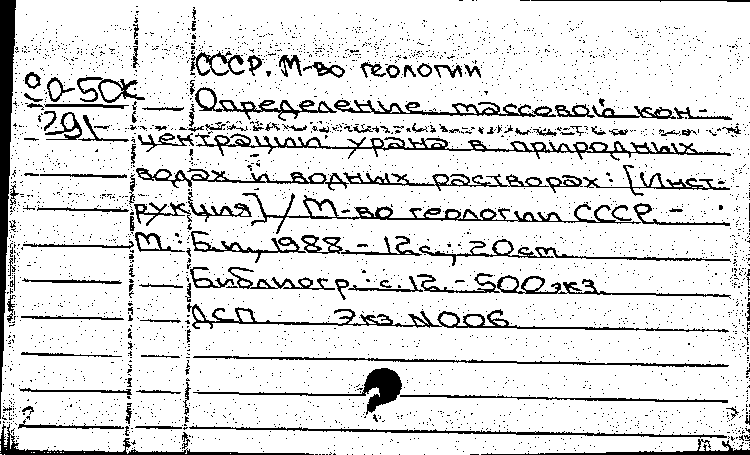 СССР. М-во геологии
0-50к
Определение массовой кон-
291-
центрации урана в природных
водах и водных растворах: [Инст-
рукция] / М-во геологии СССР. -
М.: Б.и., 1988. - 12 с.; 20 см.
Библиогр.: с. 12. - 500 экз.
ДСП. Экз. N006